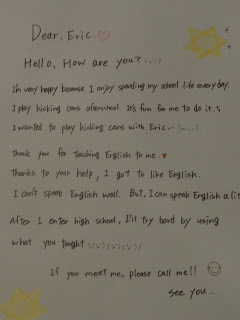 Dear, Eric ♡
Hello, How are you?
I'm very happy because I enjoy spending my school life everyday.
I play kicking cans afterschool. It's fun for me to do it.
I wanted to play kicking cans with Eric...
Thank you for teaching English to me ♥
Thanks to your help, I got to like English.
I can't speak English well. But, I can speak English a lit
After I enter high school, I'll try hard by using
what you taught
If you meet me, please call me!!
see you...